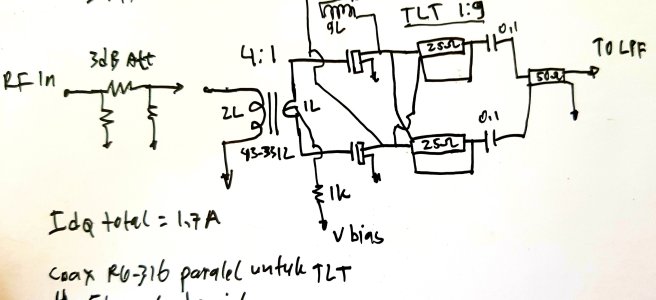 9L
TLT 1:9
3dB Att
4:1
25Ω
0,1
TO LPF
RF In
50Ω
2L
1L
0,1
25Ω
43-3312
1k
V bias
IdQ total = 1,7A
coax RG-316 paralel untuk TLT